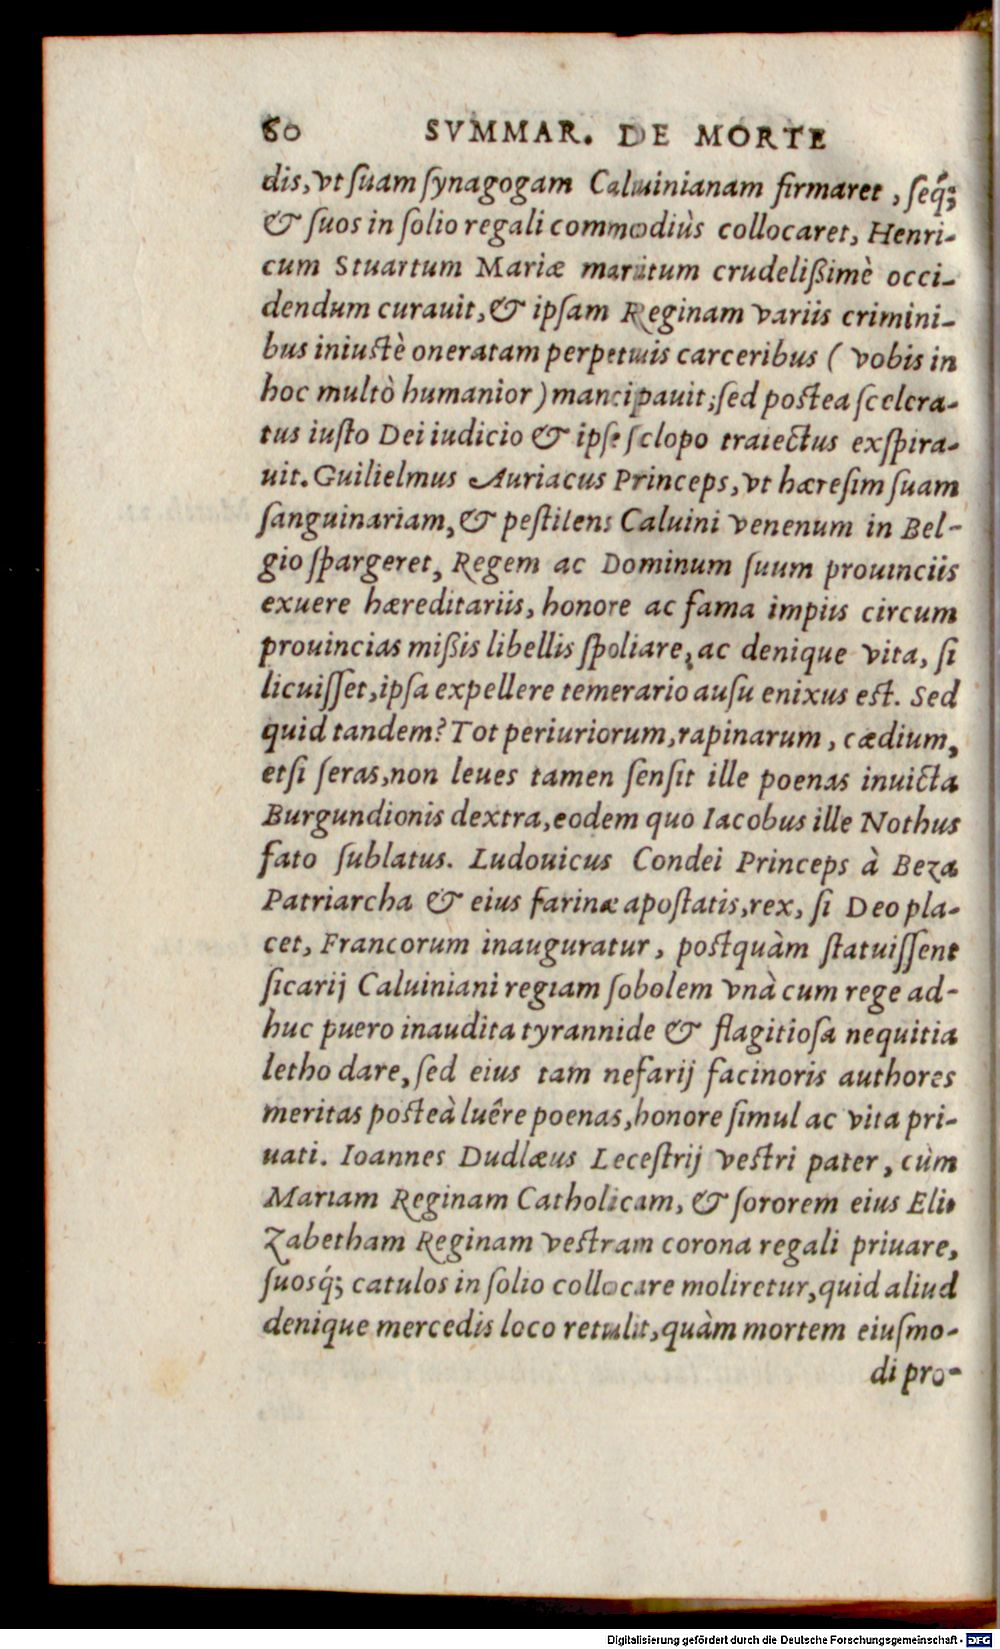 60 SVMMAR. DE MORTE
dis, vt ſuam ſynagogam Caluinianam firmaret, ſeq́;
& ſuos in ſolio regali commodiùs collocaret, Henri-
cum Stuartum Mariæ maritum crudelißimè occi-
dendum curauit, & ipſam Reginam variis crimini-
bus iniuſtè oneratam perpetuis carceribus ( vobis in
hoc multò humanior ) mancipauit; ſed poſtea ſcelera-
tus iuſto Dei iudicio & ipſe ſclopo traiectus exſpira-
uit. Guilielmus Auriacus Princeps, vt hæreſim ſuam
ſanguinariam, & peſtilens Caluini venenum in Bel-
gio ſpargeret, Regem ac Dominum ſuum prouinciis
exuere hæreditariis, honore ac fama impiis circum
prouincias mißis libellis ſpoliare, ac denique vita, ſi
licuiſſet, ipſa expellere temerario auſu enixus eſt. Sed
quid tandem? Tot periuriorum, rapinarum, cædium,
etſi ſeras, non leues tamen ſenſit ille poenas inuicta
Burgundionis dextra, eodem quo Iacobus ille Nothus
fato ſublatus. Ludouicus Condei Princeps à Beza
Patriarcha & eius farinæ apoſtatis, rex, ſi Deo pla-
cet, Francorum inauguratur, poſtquàm ſtatuiſſent
ſicarij Caluiniani regiam ſobolem vnà cum rege ad-
huc puero inaudita tyrannide & flagitioſa nequitia
letho dare, ſed eius tam nefarij facinoris authores
meritas poſteà luêre poenas, honore ſimul ac vita pri-
uati. Ioannes Dudlæus Leceſtrij veſtri pater, cùm
Mariam Reginam Catholicam, & ſororem eius Eli-
Zabetham Reginam veſtram corona regali priuare,
ſuosq́; catulos in ſolio collocare moliretur, quid aliud
denique mercedis loco retulit, quàm mortem eiuſmo-
di pro-
Digitalisierung gefördert durch die Deutsche Forschungsgemeinschaft - DFG